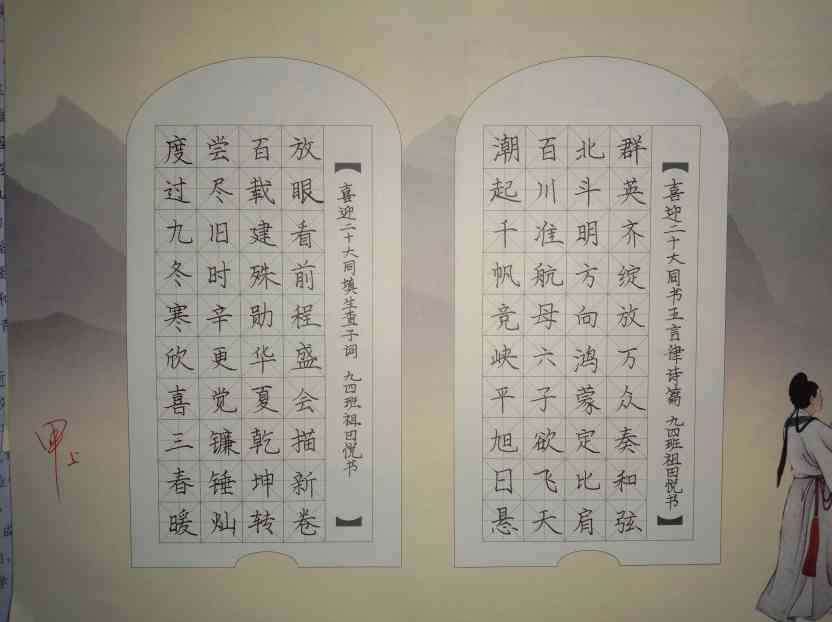 【喜迎二十大同书五言律诗篇 九四班祖田悦书】
群英齐绽放万众奏和弦
北斗明方向鸿蒙定比肩
百川准航母六子欲飞天
潮起千帆竞峡平旭日悬
【喜迎二十大同填生查子词 九四班祖田悦书】
放眼看前程盛会描新卷
百载建殊勋华夏乾坤转
尝尽旧时辛更觉镰锤灿
度过九冬寒欣喜三春暖
甲上